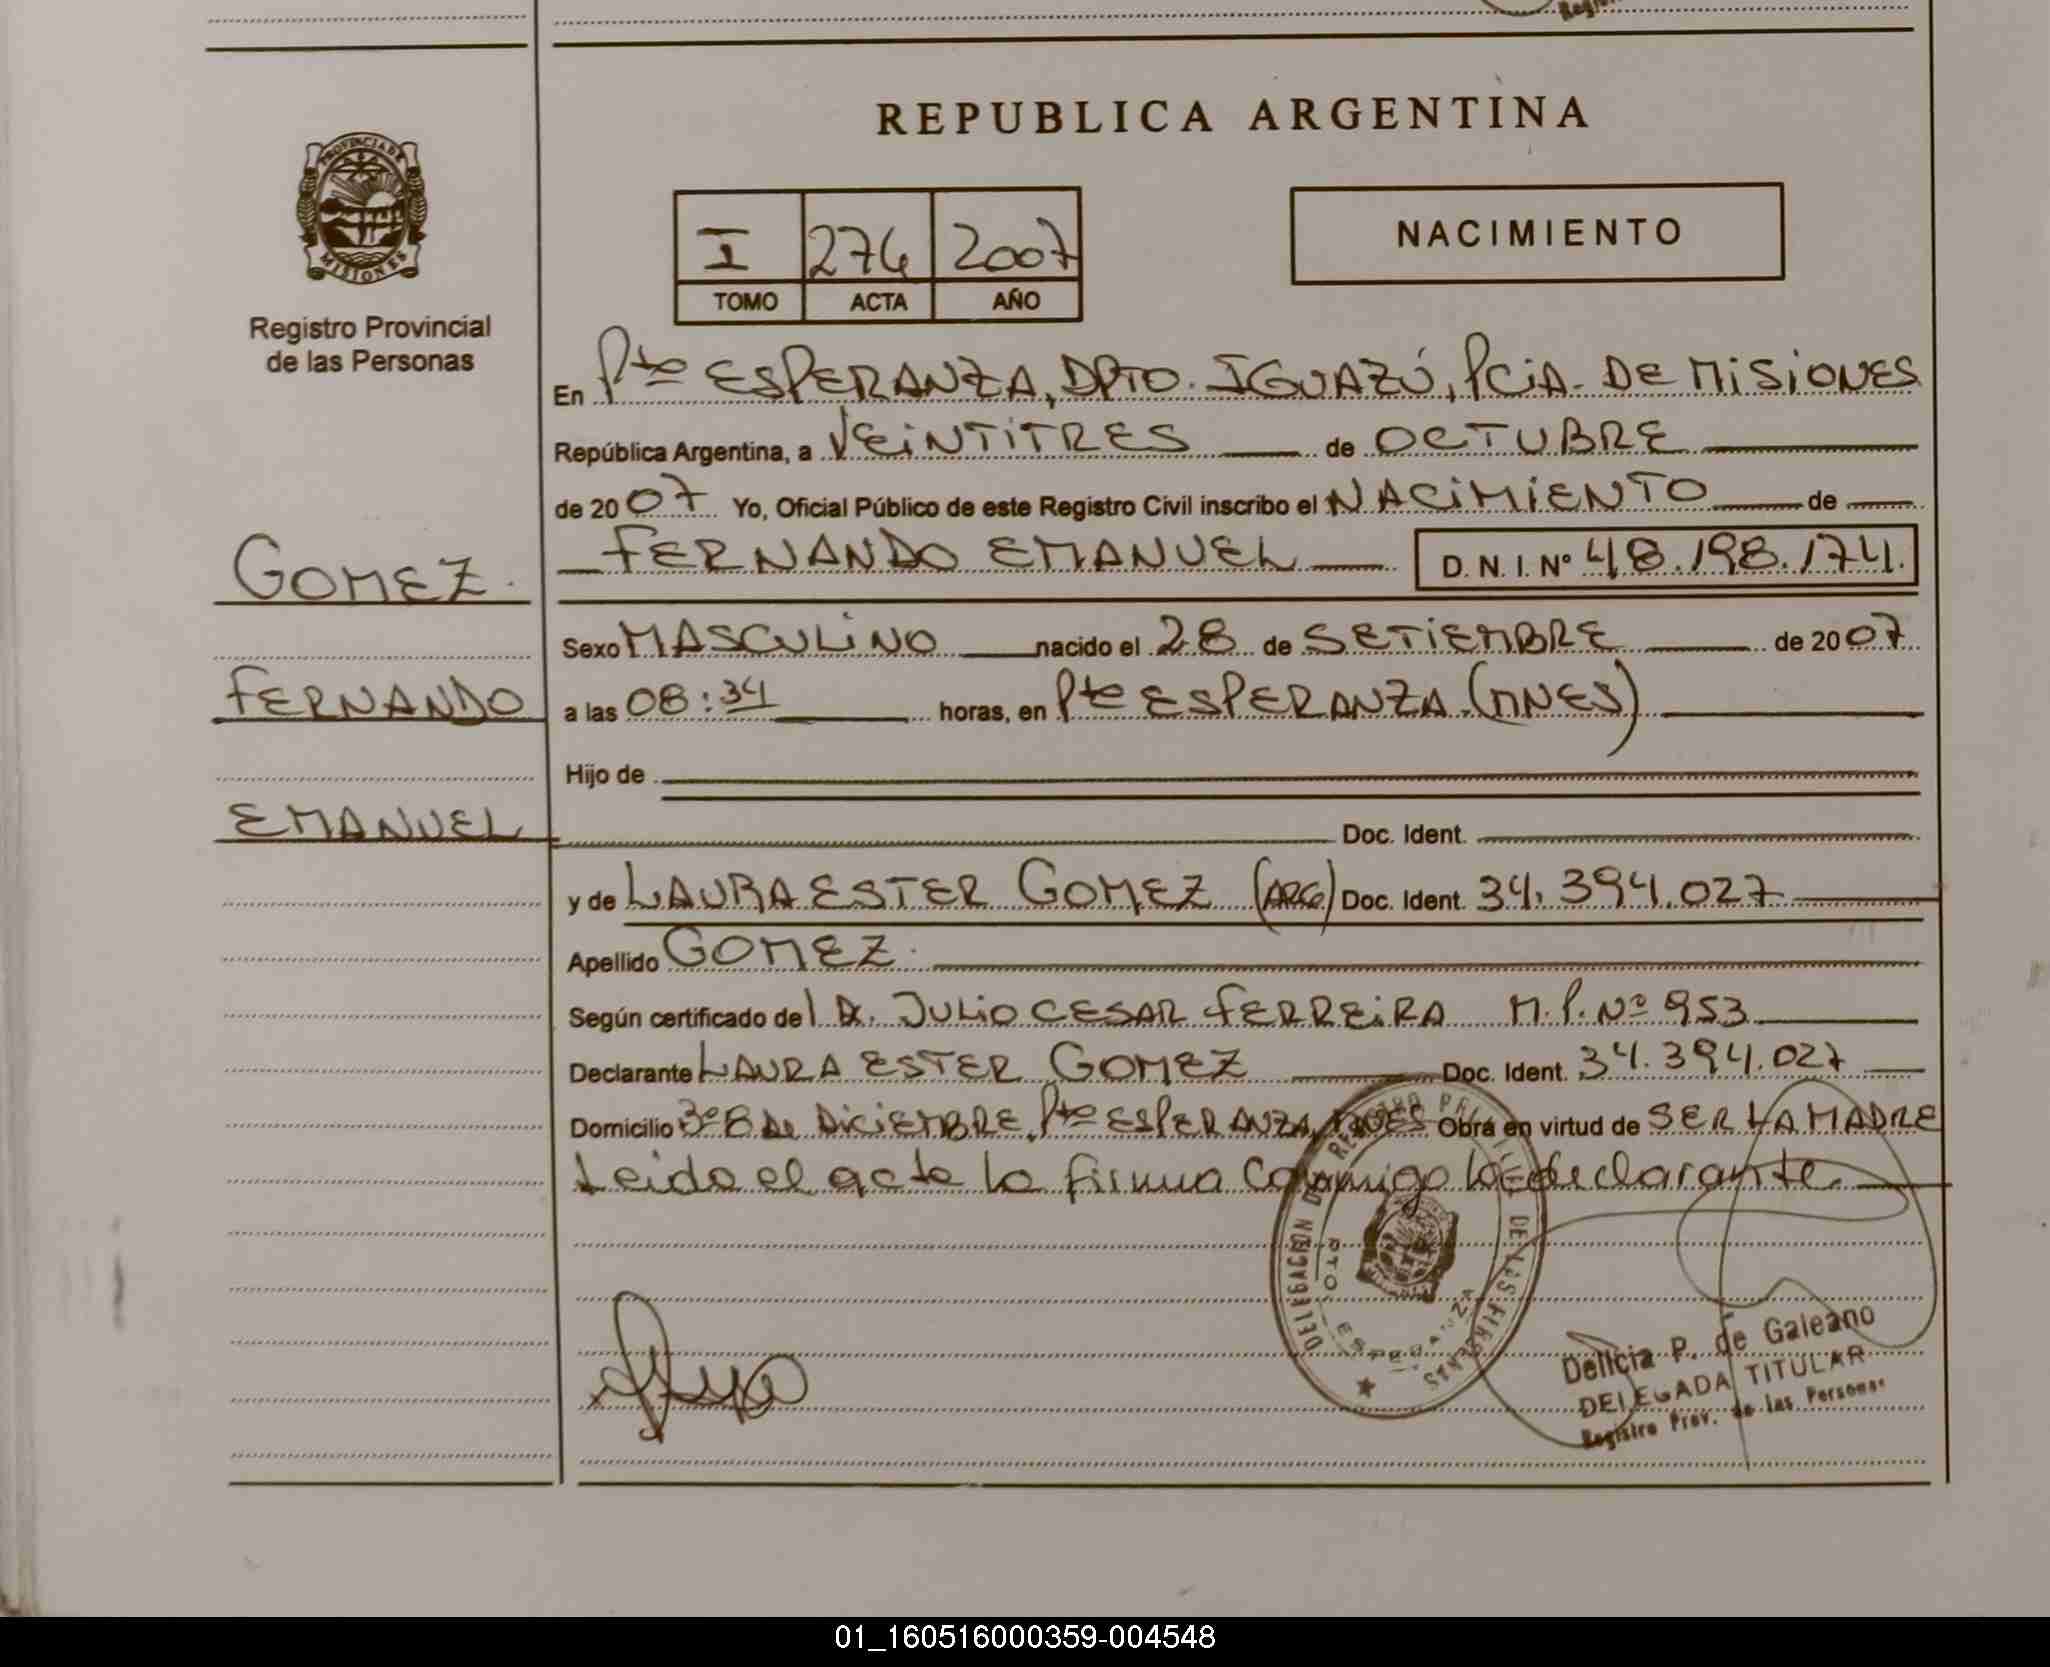 REPUBLICA ARGENTINA
PROVINCIA DE MISIONES
Registro Provincial
de las Personas
I 274 2007
TOMO ACTA AÑO
NACIMIENTO
En Pto ESPERANZA, DPTO. IGUAZÚ, PCIA. DE MISIONES
República Argentina, a VEINTITRES de OCTUBRE
de 2007 Yo, Oficial Público de este Registro Civil inscribo el NACIMIENTO de
FERNANDO EMANUEL D.N.I. Nº 48.198.174.
GOMEZ.
FERNANDO
EMANUEL
Sexo MASCULINO nacido el 28 de SETIEMBRE de 2007
a las 08:34 horas, en Pto ESPERANZA.(MNES)
Hijo de
Doc. Ident.
y de LAURA ESTER GOMEZ (ARG) Doc. Ident. 34.394.027
Apellido GOMEZ.
Según certificado del Dr. JULIO CESAR FERREIRA M.P. Nº 953
Declarante LAURA ESTER GOMEZ Doc. Ident. 34.394.027
Domicilio Bº 8 de DICIEMBRE, Pto ESPERANZA, MNES Obra en virtud de SER LA MADRE
Leido el acta la firma conmigo la declarante.
DELEGACION DE LAS PERSONAS
PTO. ESPERANZA
Delicia P. de Galeano
DELEGADA TITULAR
Registro Prov. de las Personas
01_160516000359-004548